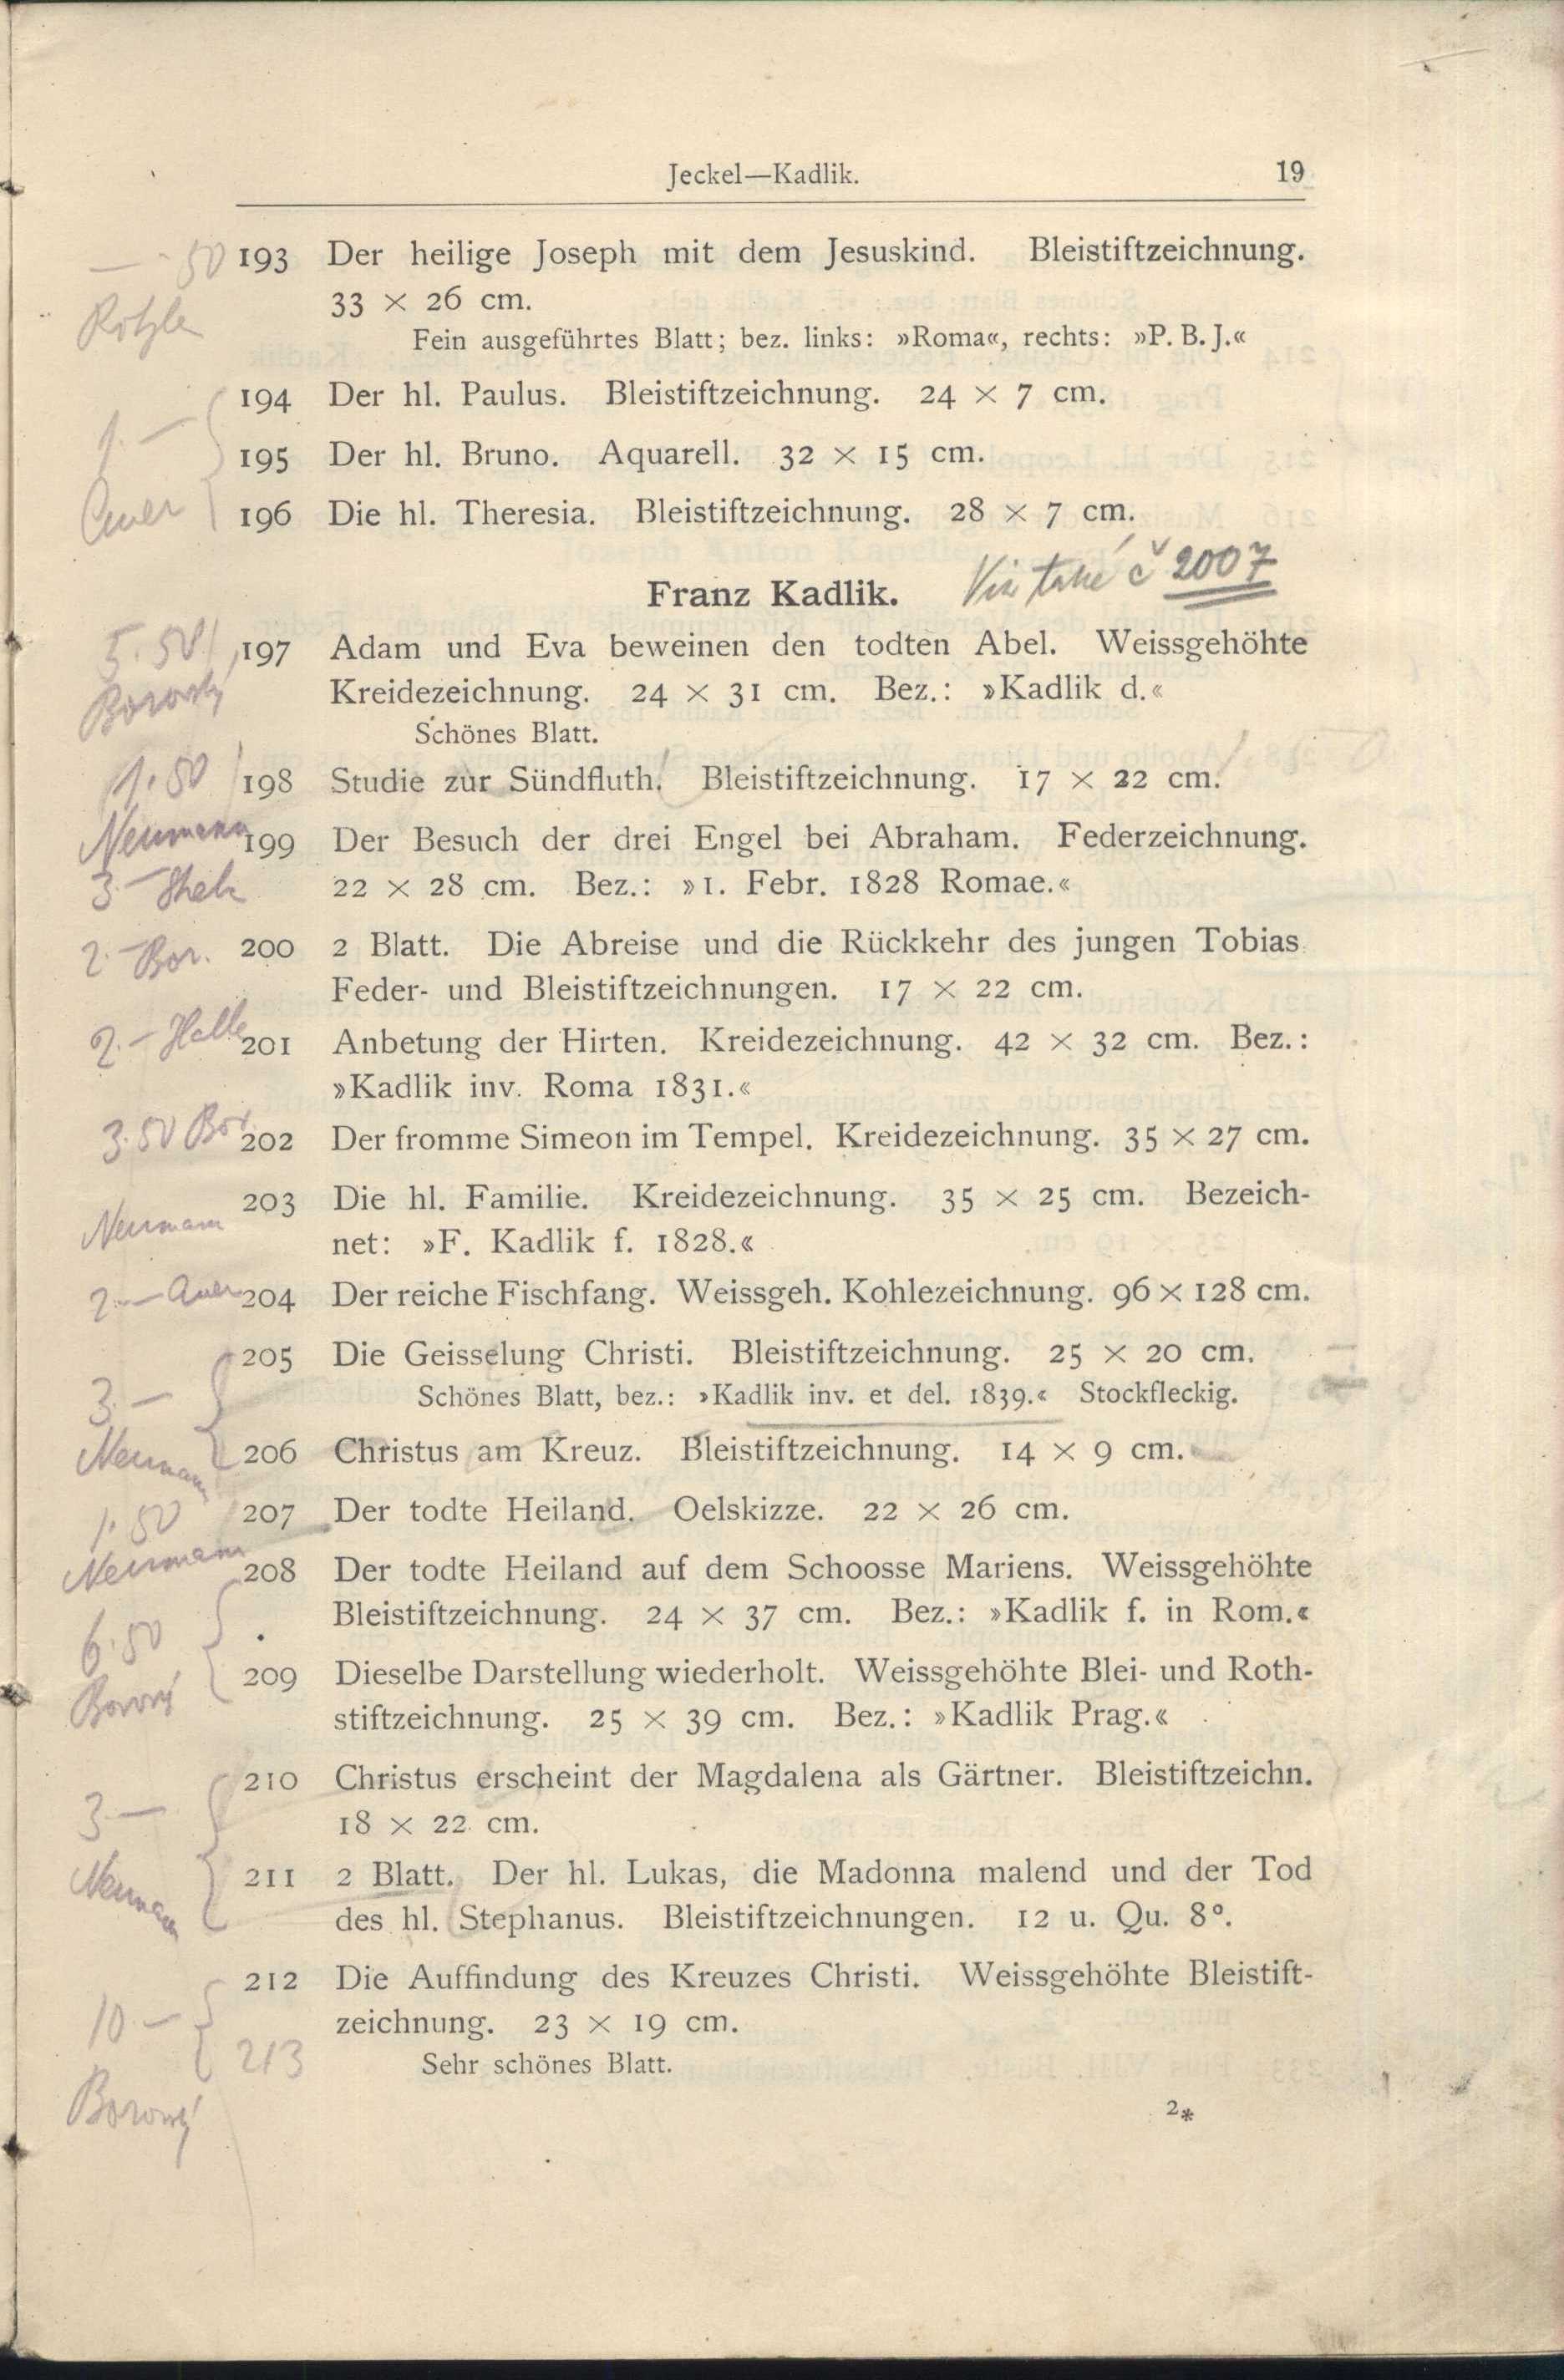 Jeckel—Kadlik. 19
— ·50 193 Der heilige Joseph mit dem Jesuskind. Bleistiftzeichnung.
33 × 26 cm.
Fein ausgeführtes Blatt; bez. links: »Roma«, rechts: »P. B. J.«
194 Der hl. Paulus. Bleistiftzeichnung. 24 × 7 cm.
1.—
195 Der hl. Bruno. Aquarell. 32 × 15 cm.
Auer 196 Die hl. Theresia. Bleistiftzeichnung. 28 × 7 cm.
Franz Kadlik. Viz také č 2007
5.50 197 Adam und Eva beweinen den todten Abel. Weissgehöhte
Borový Kreidezeichnung. 24 × 31 cm. Bez.: »Kadlik d.«
Schönes Blatt.
1.50 198 Studie zur Sündfluth. Bleistiftzeichnung. 17 × 22 cm.
Neumann 199 Der Besuch der drei Engel bei Abraham. Federzeichnung.
3.— 22 × 28 cm. Bez.: »1. Febr. 1828 Romae.«
2.— Bor. 200 2 Blatt. Die Abreise und die Rückkehr des jungen Tobias
Feder- und Bleistiftzeichnungen. 17 × 22 cm.
2.— Halle 201 Anbetung der Hirten. Kreidezeichnung. 42 × 32 cm. Bez.:
»Kadlik inv. Roma 1831.«
3.50 Bor. 202 Der fromme Simeon im Tempel. Kreidezeichnung. 35 × 27 cm.
203 Die hl. Familie. Kreidezeichnung. 35 × 25 cm. Bezeich-
Neumann net: »F. Kadlik f. 1828.«
2.— Auer 204 Der reiche Fischfang. Weissgeh. Kohlezeichnung. 96 × 128 cm.
205 Die Geisselung Christi. Bleistiftzeichnung. 25 × 20 cm.
3.— Schönes Blatt, bez.: »Kadlik inv. et del. 1839.« Stockfleckig.
Neumann 206 Christus am Kreuz. Bleistiftzeichnung. 14 × 9 cm.
1.50 207 Der todte Heiland. Oelskizze. 22 × 26 cm.
Neumann 208 Der todte Heiland auf dem Schoosse Mariens. Weissgehöhte
6.50 Bleistiftzeichnung. 24 × 37 cm. Bez.: »Kadlik f. in Rom.«
Borový 209 Dieselbe Darstellung wiederholt. Weissgehöhte Blei- und Roth-
stiftzeichnung. 25 × 39 cm. Bez.: »Kadlik Prag.«
210 Christus erscheint der Magdalena als Gärtner. Bleistiftzeichn.
3.— 18 × 22 cm.
Neumann 211 2 Blatt. Der hl. Lukas, die Madonna malend und der Tod
des hl. Stephanus. Bleistiftzeichnungen. 12 u. Qu. 8°.
212 Die Auffindung des Kreuzes Christi. Weissgehöhte Bleistift-
10.— zeichnung. 23 × 19 cm.
213 Sehr schönes Blatt.
Borový
2*